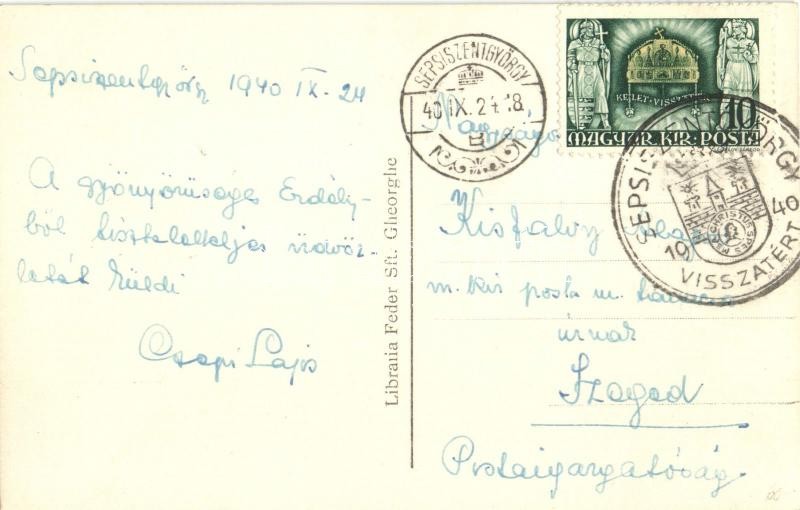 Sepsiszentgyörgy 1940 IX-24
A gyönyörűséges Erdély-
ből tiszteletteljes üdvöz-
letét küldi
Csapi Lajos
Libraria Feder Sft. Gheorghe
SEPSISZENTGYÖRGY
40 IX. 24. 18
B
KELET-VISSZATÉR
10
MAGYAR KIR. POSTA
SEPSISZENTGYÖRGY
1940
VISSZATÉRT
Nagyságos
Kisfalvy
m. kir posta m. tanácsos
úrnak
Szeged
Postaigazgatóság.